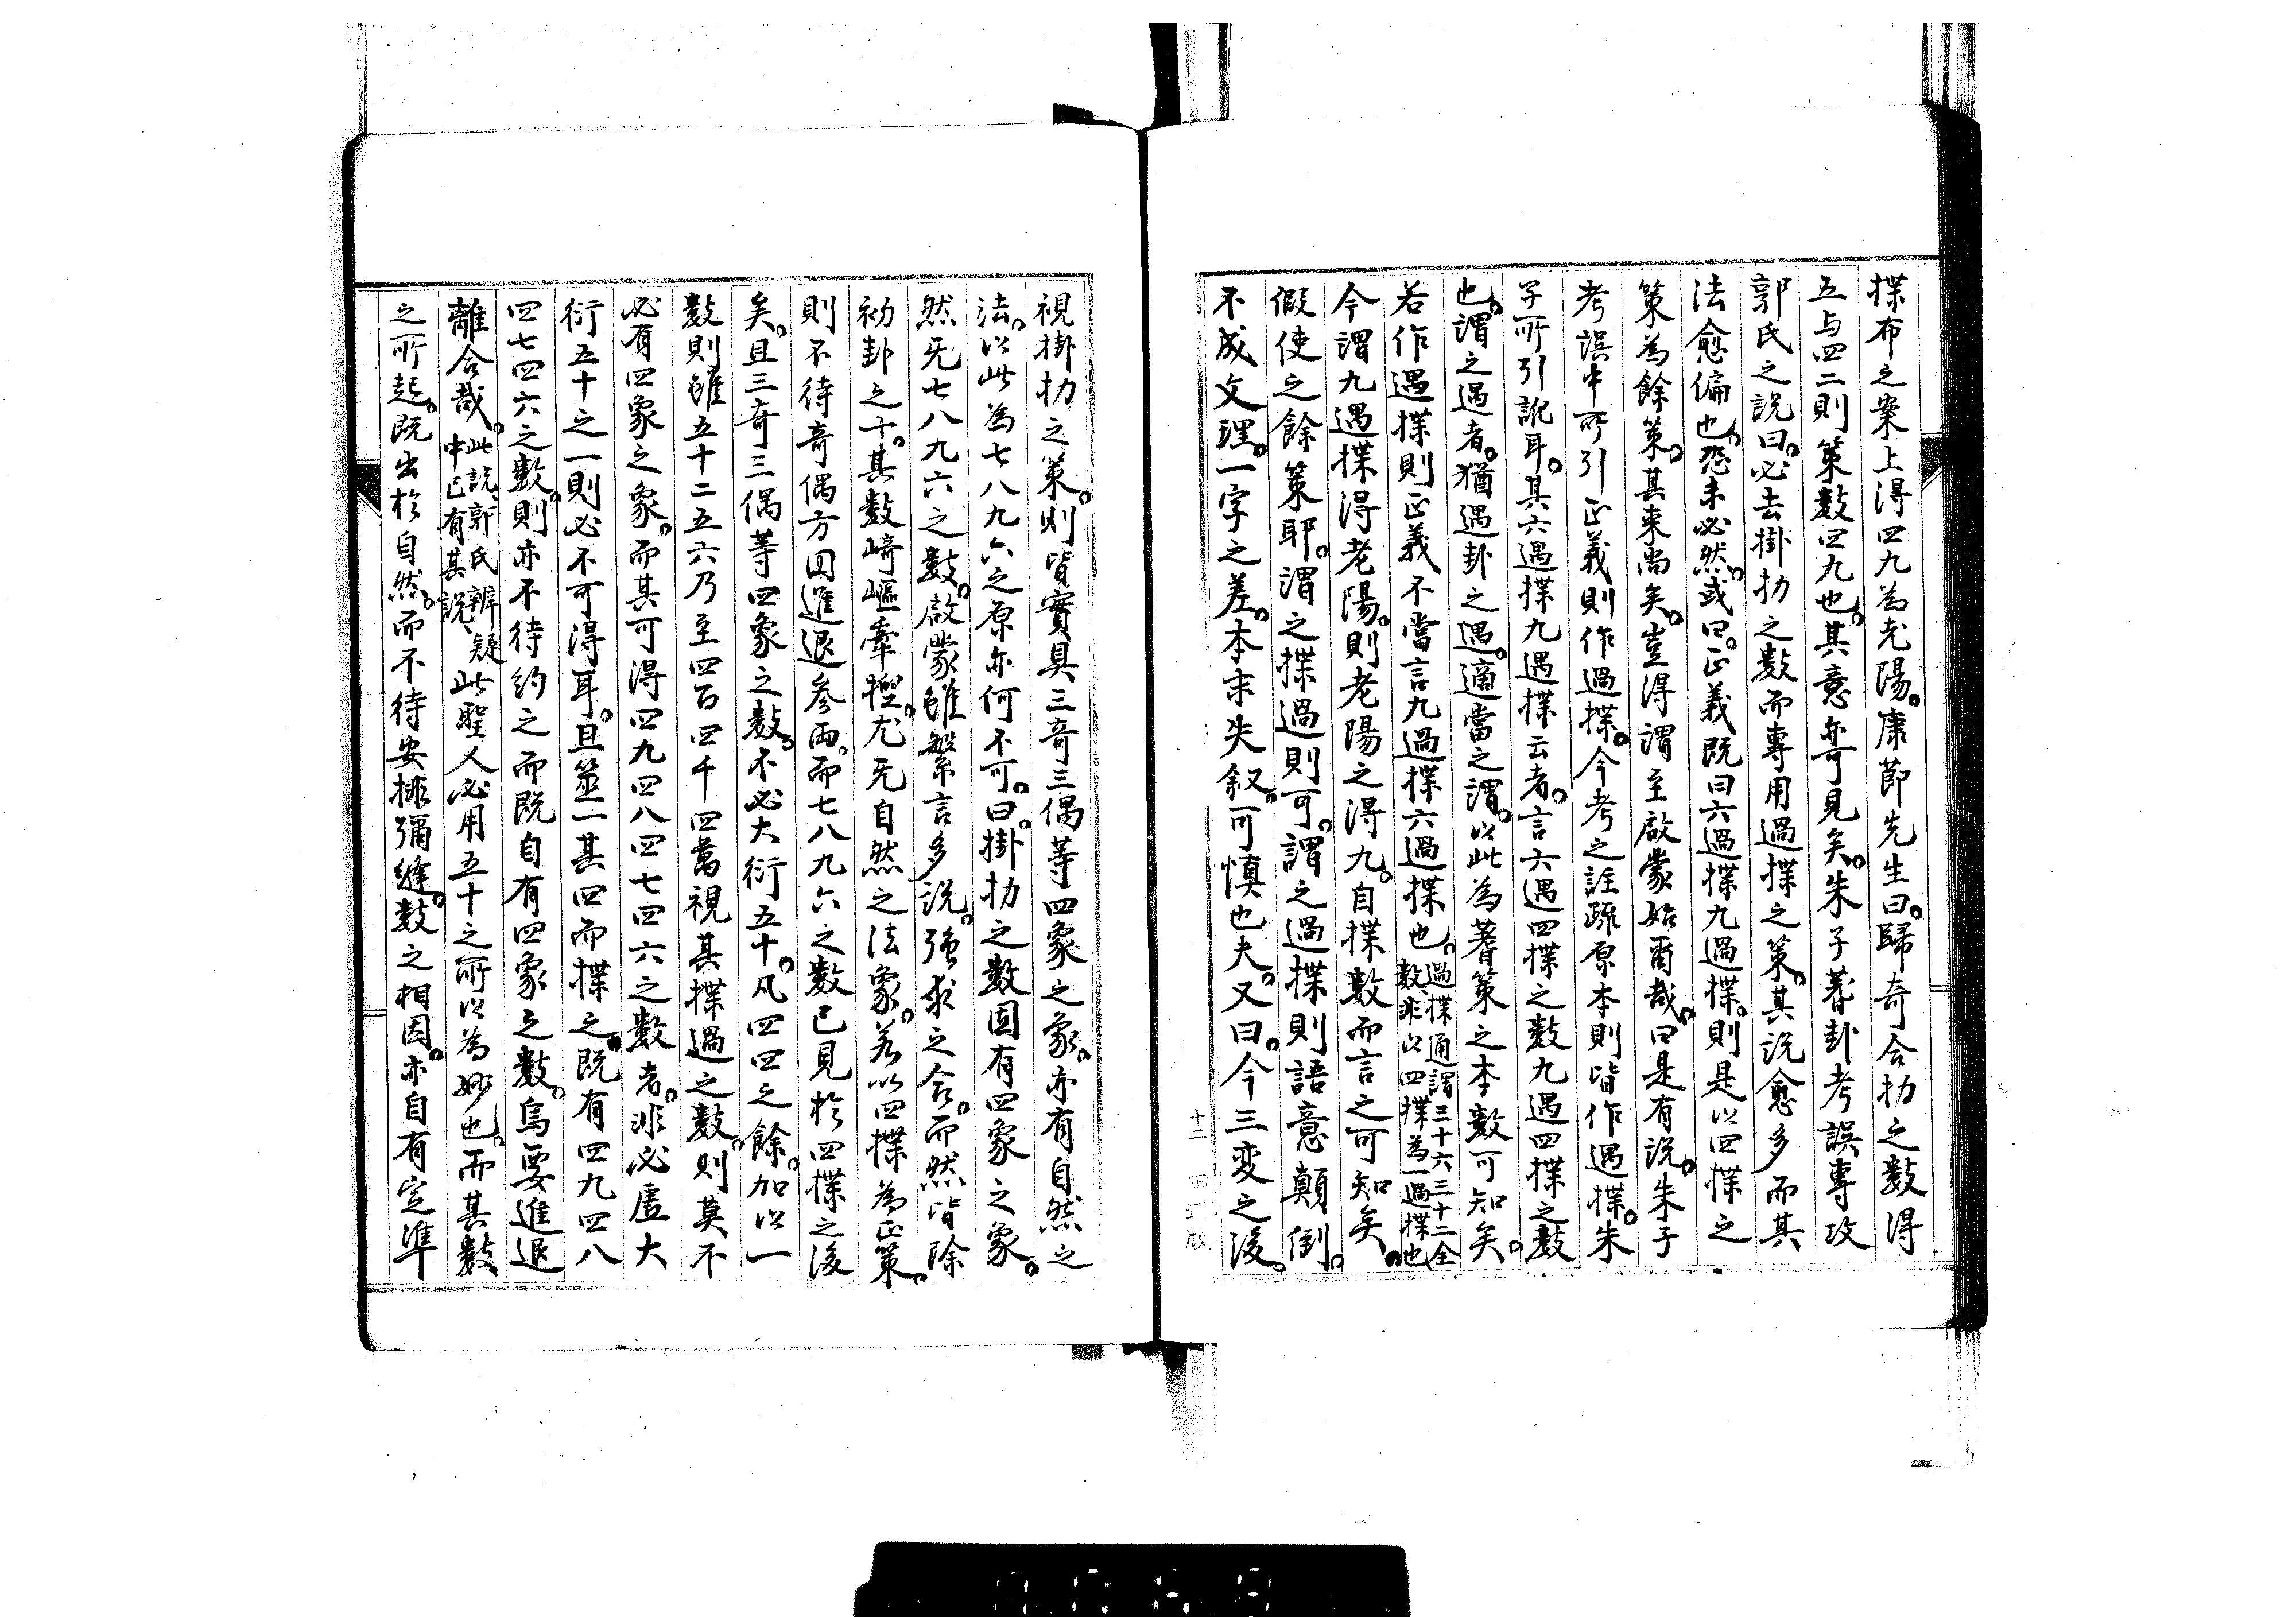 揲布之案上得四九為老陽。康節先生曰。歸奇合扐之數得
五与四二則策數四九也。其意亦可見矣。朱子蓍卦考誤專攻
郭氏之說曰。必去掛扐之數而專用過揲之策。其說愈多而其
法愈偏也。恐未必然。或曰。正義既曰六過揲九過揲。則是以四揲之
策為餘策。其来尚矣。豈得謂至啟蒙始爾哉。曰是有說。朱子
考誤中所引正義則作過揲。今考之註疏原本則皆作遇揲。朱
子所引訛耳。其六遇揲九遇揲云者。言六遇四揲之數九遇四揲之數
也。謂之遇者。猶遇卦之遇。適當之謂。以此為蓍策之本數可知矣。
若作過揲則正義不當言九過揲六過揲也。過揲通謂三十六三十二全
數、非以四揲為一過揲也
今謂九遇揲得老陽。則老陽之得九。自揲數而言之可知矣。
假使之餘策耶。謂之揲過則可。謂之過揲則語意顛倒。
不成文理。一字之差。本末失叙。可慎也夫。又曰。今三変之後。
十二
視掛扐之策。則皆實具三奇三偶等四象之象。亦有自然之
法。以此為七八九六之原亦何不可。曰。掛扐之數固有四象之象。
然旡七八九六之數。啟蒙雖繁言多說。強求之合。而然皆除
初卦之一。其數崎嶇牽㹅。尤旡自然之法象。若以四揲為正策。
則不待奇偶方囙進退参兩。而七八九六之數已見於四揲之後
矣。且三奇三偶等四象之數。不必大衍五十。凡四四之餘。加以一
數則雖五十二五六乃至四百四千四萬視其揲過之數。則莫不
必有四象之象。而其可得四九四八四七四六之數者。非必虛大
衍五十之一則必不可得耳。且筮一其四而揲之。既有四九四八
四七四六之數。則亦不待約之而既自有四象之數。烏要進退
離合哉。此說、郭氏辨疑
中已有其說、此聖人必用五十之所以為妙也。而其數
之所起。既出於自然。而不待安排彌縫。數之相因。亦自有定準